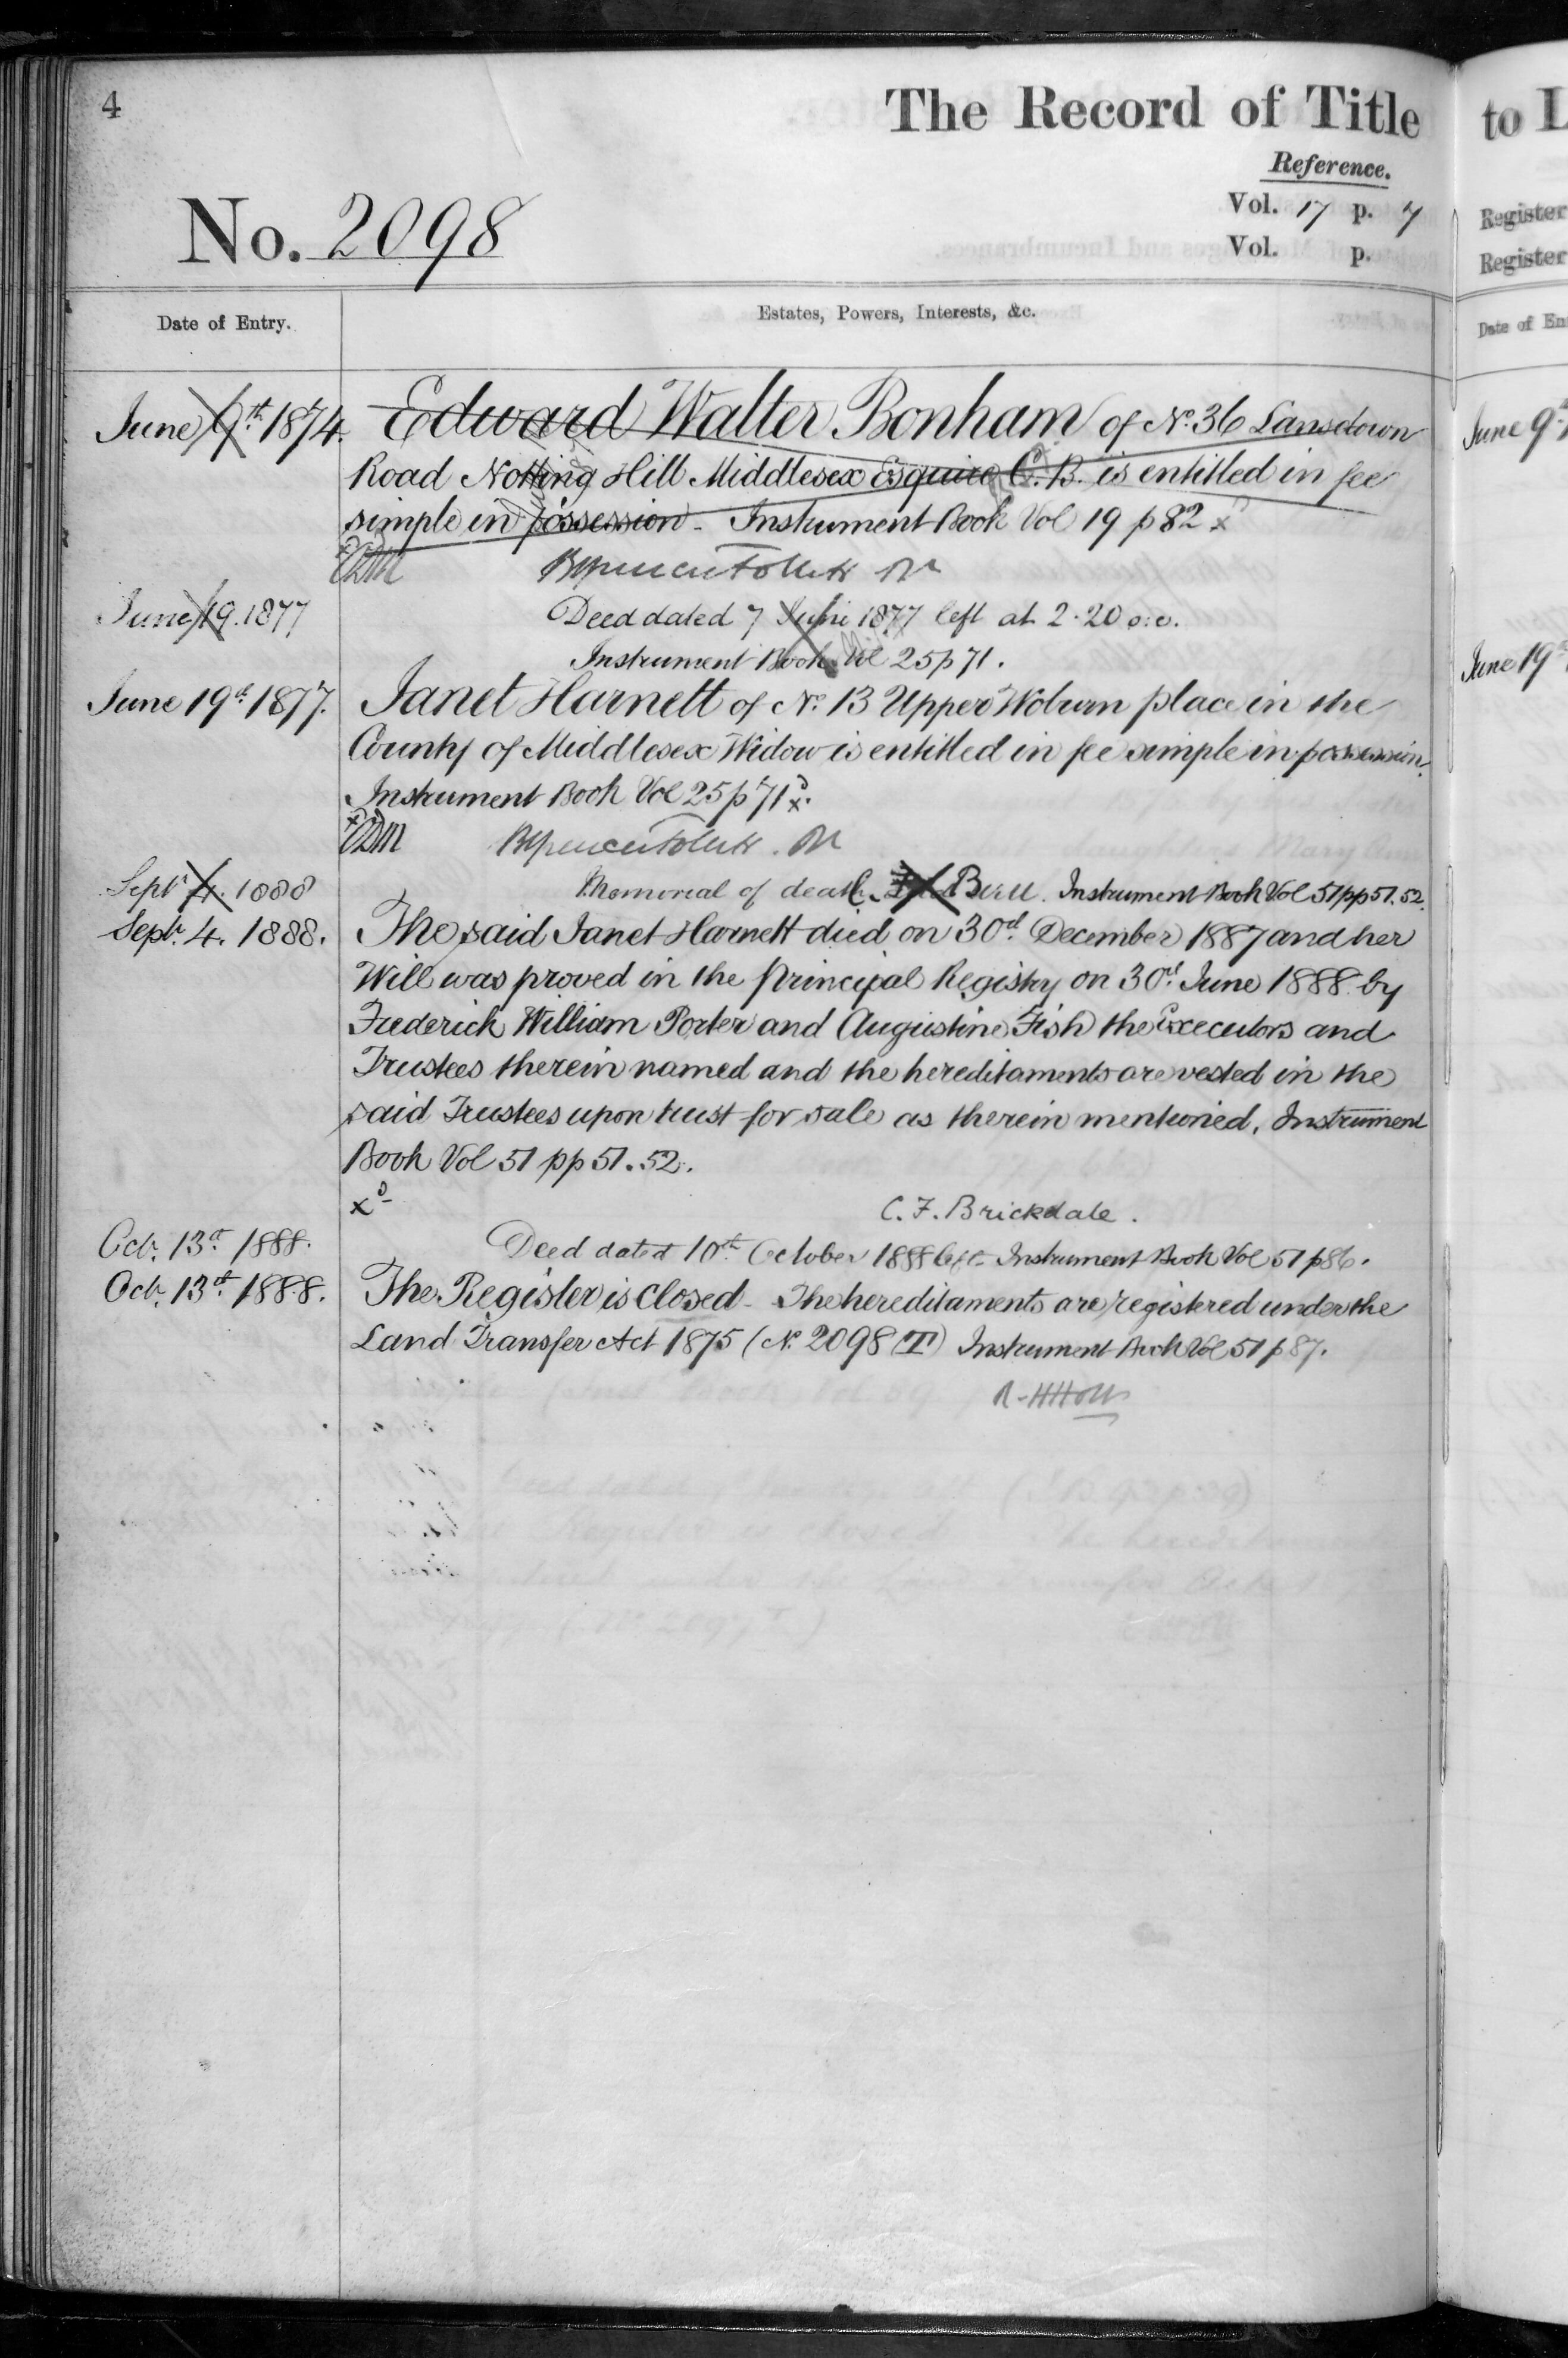 4
The Record of Title
to L
Reference.
Vol. 17 p. 7
Vol. p.
No. 2098
Register
Register
Date of Entry.
Estates, Powers, Interests, &c.
Date of En
June 9th 1874. Edward Walter Bonham of No. 36 Lansdown
Road Notting Hill Middlesex Esquire C.B. is entitled in fee
simple in possession - Instrument Book Vol 19 p 82 x
June 9th
June 19. 1877 Deed dated 7 June 1877 left at 2.20 o.c.
Instrument Book Vol 25 p 71.
June 19th 1877. Janet Harnett of No. 13 Upper Woburn place in the
County of Middlesex Widow is entitled in fee simple in possession.
Instrument Book Vol 25 p 71 x.
June 19th
Sepr. 4. 1888 Memorial of death Instrument Book Vol 51 pp 51.52.
Sepr. 4. 1888. The said Janet Harnett died on 30th December 1887 and her
Will was proved in the principal Registry on 30th June 1888 by
Frederick William Porter and Augustine Fish the Executors and
Trustees therein named and the hereditaments are vested in the
said Trustees upon trust for sale as therein mentioned. Instrument
Book Vol 51 pp 51.52.
x
C. F. Brickdale.
Oct. 13th 1888. Deed dated 10th October 1888 left Instrument Book Vol 51 p 86.
Oct. 13th 1888. The Register is Closed - The hereditaments are registered under the
Land Transfer Act 1875 (No. 2098 (T) Instrument Book Vol 51 p 87.